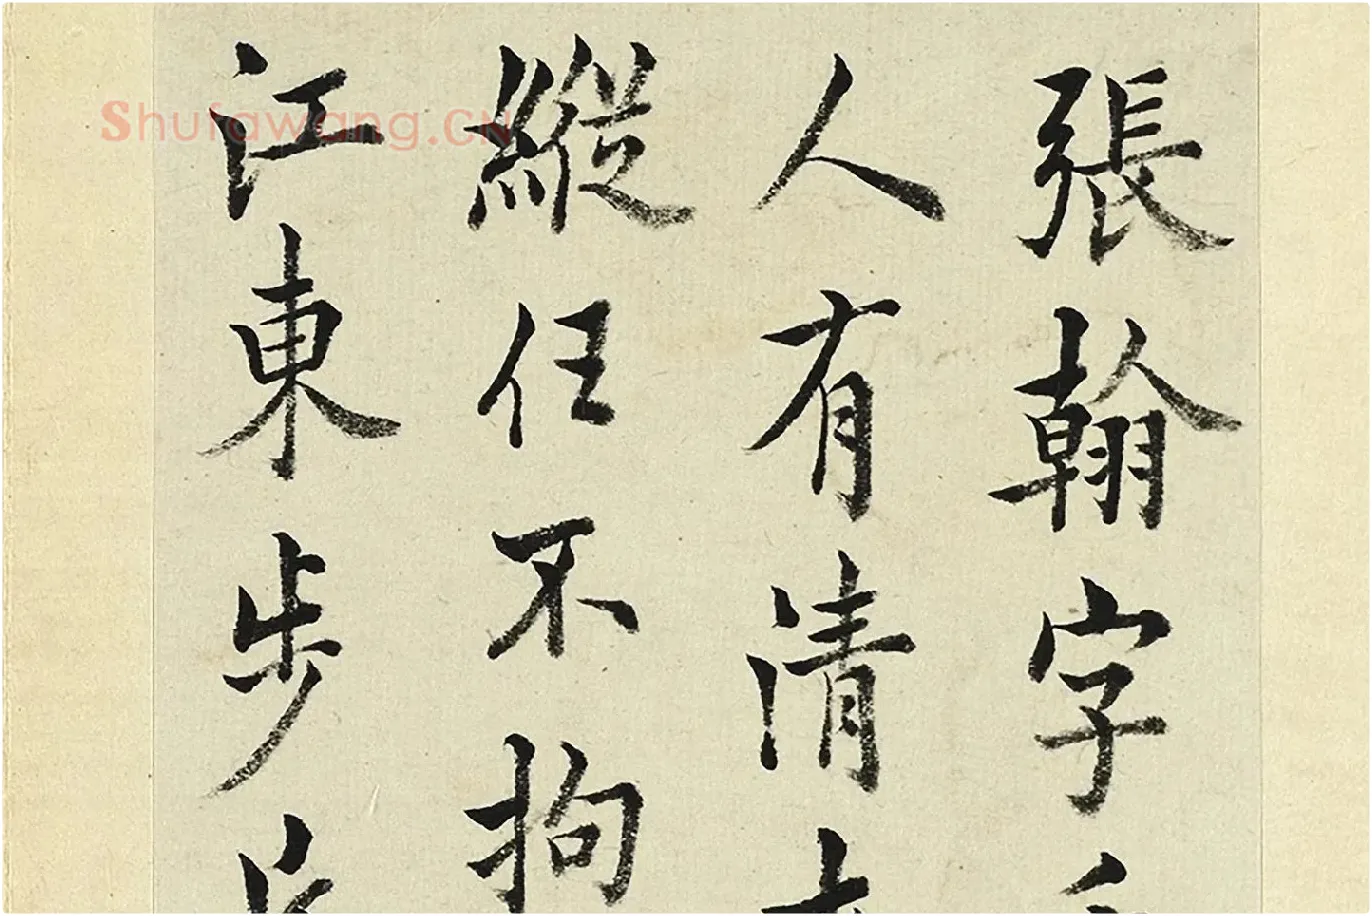 張翰字
人有清
縱任不拘
江東步
Shufawang.CN